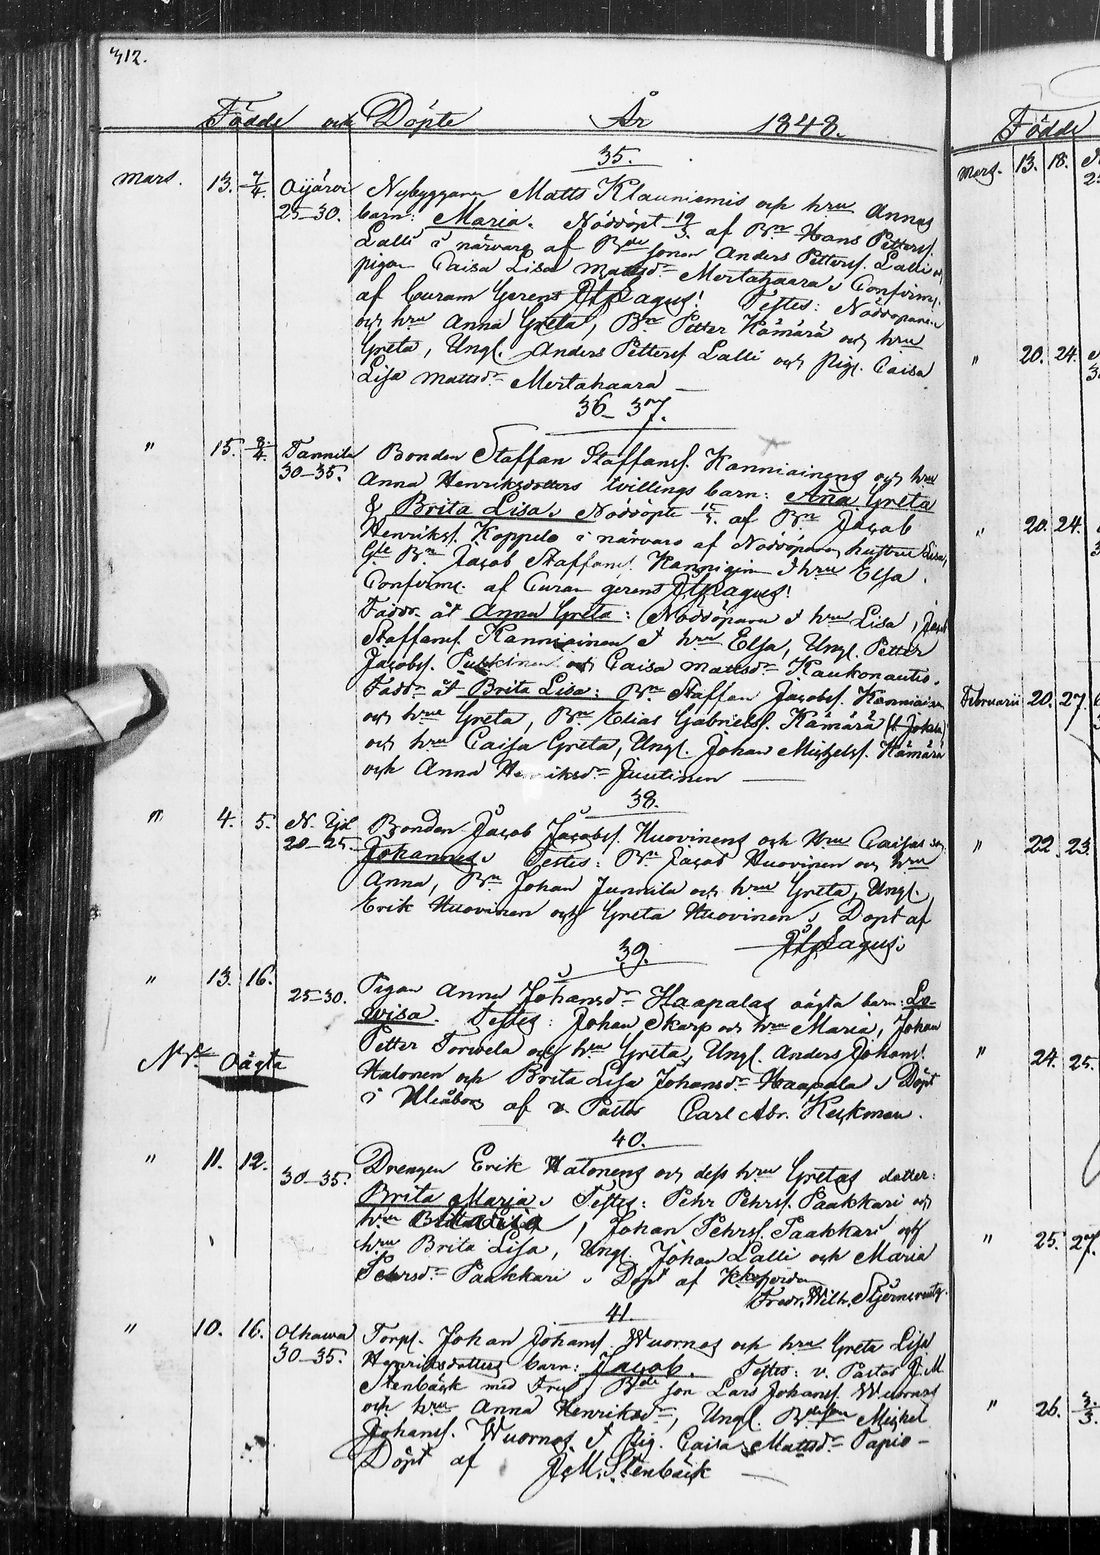 312.
Födde och Döpte År 1848.
35.
Mars. 13. 7/4. Oijärvi Nybyggaren Matts Klauniemis och hru Annas
25–30. barn: Maria. Nöddöpt 19/3 af Bn Hans Petterss.
Lalli i närvaro af Bde sonen Anders Petterss. Lalli och
pigan Caisa Lisa Mattsdr Mertahaara, Confirm.
af Curam Gerens Lagus! Testes: Nöddöparen
och hru Anna Greta, Bn Petter Kämärä och hru
Greta, Ungl. Anders Petterss Lalli och Pig. Caisa
Lisa Mattsdr Mertahaara —
36–37.
" 15. 8/4. Tannila Bonden Staffan Staffanss. Kanniainens och hru
30–35. Anna Henriksdotters tvillings barn: Aña Greta
& Brita Lisa, Nöddöpte af Bn Jacob
Henrikss. Koppelo i närvaro af Nöddöparen hustru Lisa,
Gle Bn Jacob Staffans. Kannigin & hru Elsa.
Confirm. af Curam gerens Lagus!
Faddr. åt Anna Greta: Nöddöparen & hru Lisa, Jacob
Staffanss. Kanniainen & hru Elsa, Ungl. Petter
Jacobss. Pukkinen och Caisa Mattsdr Kaukonautio.
Faddr åt Brita Lisa: Bn Staffan Jacobss. Kanniainen
och hru Greta, Bn Elias Gabrielss. Kämärä (& Jokela)
och hru Caisa Greta, Ungl. Johan Michelss. Kämärä
och Anna Henriksdr Juutinen —
38.
" 4. 5. N. Ijå Bonden Jacob Jacobss. Huovinens och Hru Caisas son
20–25. Johannes, Testes: Bn Jacob Huovinen och hru
Anna, Bn Johan Junnila och hru Greta, Ungl.
Erik Huovinen och Greta Huovinen, Döpt af
Lagus.
39.
" 13. 16. Pigan Anna Johansdr Haapalas oägta barn: Lo-
25–30. wisa. Testes: Johan Skarp och hru Maria, Johan
Petter Torvela och hru Greta, Ungl. Anders Johanss.
Oägta Halonen och Brita Lisa Johansdr Haapala, Döpt
i Uleåborg af v. Pastor Carl Abr. Keckman.
40.
" 11. 12. Drengen Erik Halonens och dess hru Gretas dotter:
30–35. Brita Maria, Testes: Pehr Pehrss. Paakkari och
hru, Johan Pehrss. Paakkari och
hru Brita Lisa, Ungl. Johan Lalli och Maria
Pehrsdr Paakkari, Döpt af
Fredr. Wilh. Stjerncreutz.
41.
" 10. 16. Olhawa Torp. Johan Johanss. Wuornos och hru Greta Lisa
30–35. Henriksdotters barn: Jacob. Testes: v. Pastor J. M.
Stenbäck med Fru, Bde son Lars Johanss. Wuornos
och hru Anna Henriksdr, Ungl. Bdeson Michel
Johanss. Wuornos & Pig. Caisa Mattsdr Tapio –
Döpt af J. M. Stenbäck —
Födde
Mars. 13. 18.
" 20. 24.
" 20. 24.
Februarii 20. 27.
" 22. 23.
" 24. 25.
" 25. 27.
" 26. 3/3.